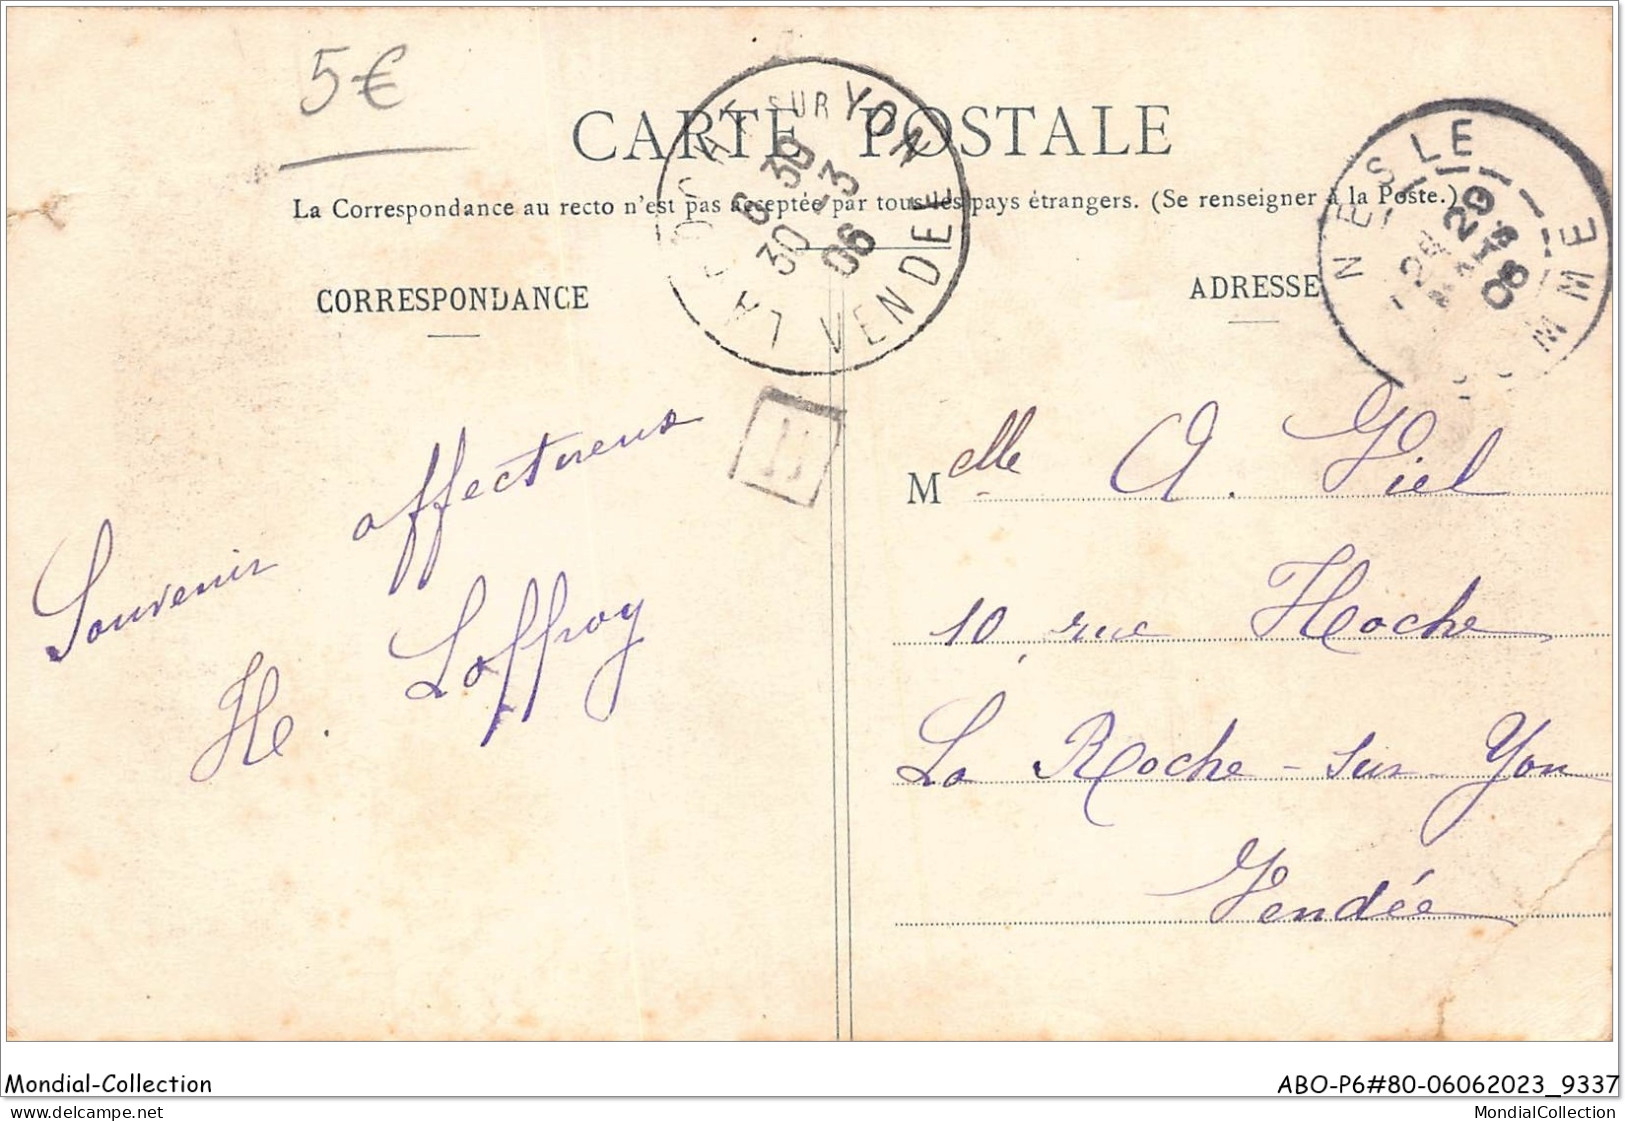 5€
CARTE POSTALE
La Correspondance au recto n'est pas acceptée par tous les pays étrangers. (Se renseigner à la Poste.)
LA ROCHE SUR YON
6 30
30 -3
06
VENDEE
NESLE
29
MARS
06
SOMME
CORRESPONDANCE
ADRESSE
Souvenir affectueux
H. Loffroy
Melle A. Viel
10 rue Hoche
La Roche-sur-Yon
Vendée
Mondial-Collection
ABO-P6#80-06062023_9337
delcampe.net
MondialCollection